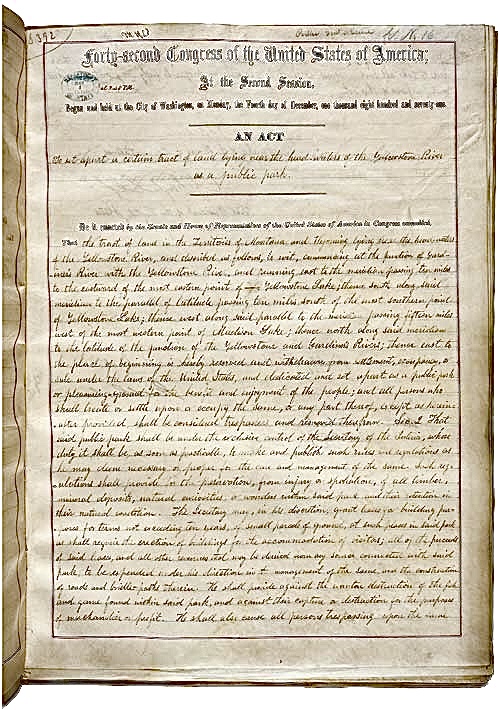 8392
Forty-second Congress of the United States of America;
At the Second Session,
Begun and held at the City of Washington, on Monday, the Fourth day of December, one thousand eight hundred and seventy-one.
AN ACT
To set apart a certain tract of land lying near the head-waters of the Yellowstone River
as a public park.
Be it enacted by the Senate and House of Representatives of the United States of America in Congress assembled,
That the tract of land in the Territories of Montana and Wyoming lying near the head-waters
of the Yellowstone River, and described as follows, to wit, commencing at the junction of Gard-
iner's River with the Yellowstone River, and running east to the meridian passing ten miles
to the eastward of the most eastern point of Yellowstone Lake; thence south along said
meridian to the parallel of latitude passing ten miles south of the most southern point
of Yellowstone Lake; thence west along said parallel to the meridian passing fifteen miles
west of the most western point of Madison Lake; thence north along said meridian
to the latitude of the junction of the Yellowstone and Gardiner's Rivers; thence east to
the place of beginning is hereby reserved and withdrawn from settlement, occupancy, or
sale under the laws of the United States, and dedicated and set apart as a public park
or pleasuring-ground for the benefit and enjoyment of the people; and all persons who
shall locate or settle upon or occupy the same, or any part thereof, except as herein-
after provided shall be considered trespassers and removed therefrom. Sec. 2 That
said public park shall be under the exclusive control of the Secretary of the Interior, whose
duty it shall be, as soon as practicable, to make and publish such rules and regulations as
he may deem necessary or proper for the care and management of the same. Such reg-
ulations shall provide for the preservation, from injury or spoliation, of all timber,
mineral deposits, natural curiosities, or wonders within said park, and their retention in
their natural condition. The Secretary may, in his discretion, grant leases for building pur-
poses for terms not exceeding ten years, of small parcels of ground, at such places in said park
as shall require the erection of buildings for the accommodation of visitors; all of the proceeds
of said leases, and all other revenues that may be derived from any source connected with said
park, to be expended under his direction in the management of the same and the construction
of roads and bridle-paths therein. He shall provide against the wanton destruction of the fish
and game found within said park, and against their capture or destruction for the purposes
of merchandise or profit. He shall also cause all persons trespassing upon the same